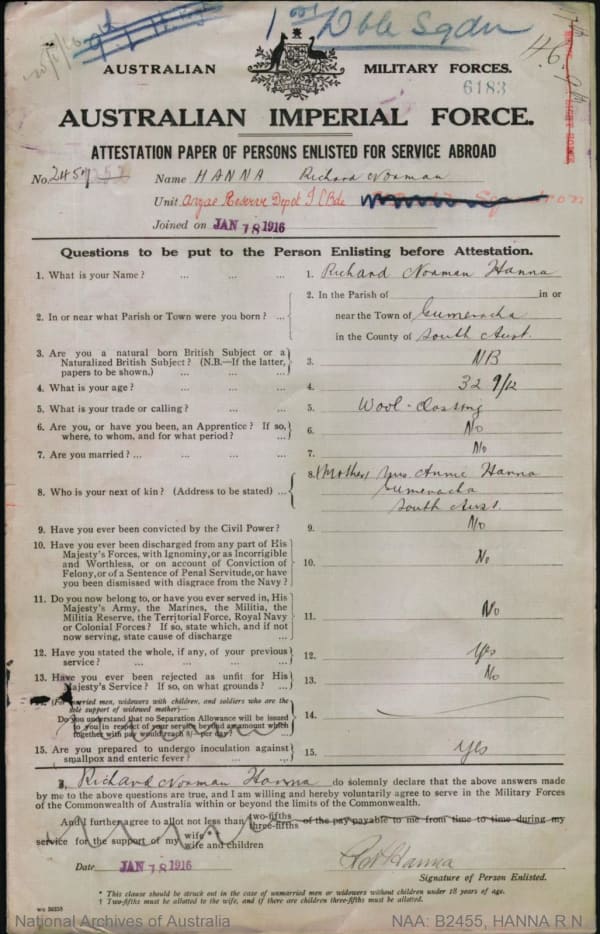 1st Dble Sqdn
AUSTRALIAN MILITARY FORCES.
6183
AUSTRALIAN IMPERIAL FORCE.
ATTESTATION PAPER OF PERSONS ENLISTED FOR SERVICE ABROAD
No. 2457 Name HANNA Richard Norman
Unit Reserve Depot
Joined on JAN 7 8 1916
Questions to be put to the Person Enlisting before Attestation.
1. What is your Name? ... ... ... 1. Richard Norman Hanna
2. In or near what Parish or Town were you born? ... 2. In the Parish of in or
near the Town of Gumeracha
in the County of South Aust.
3. Are you a natural born British Subject or a
Naturalized British Subject? (N.B.—If the latter,
papers to be shown.) ... ... ... 3. NB
4. What is your age? ... ... ... 4. 32 9/12
5. What is your trade or calling? ... ... 5. Wool-classing
6. Are you, or have you been, an Apprentice? If so,
where, to whom, and for what period? ... 6. No
7. Are you married? ... ... ... 7. No
8. Who is your next of kin? (Address to be stated) ... 8. (Mother) Mrs Annie Hanna
Gumeracha
South Aust.
9. Have you ever been convicted by the Civil Power? 9. No
10. Have you ever been discharged from any part of His
Majesty's Forces, with Ignominy, or as Incorrigible
and Worthless, or on account of Conviction of
Felony, or of a Sentence of Penal Servitude, or have
you been dismissed with disgrace from the Navy? 10. No
11. Do you now belong to, or have you ever served in, His
Majesty's Army, the Marines, the Militia, the
Militia Reserve, the Territorial Force, Royal Navy
or Colonial Forces? If so, state which, and if not
now serving, state cause of discharge ... 11. No
12. Have you stated the whole, if any, of your previous
service? ... ... ... ... 12. Yes
13. Have you ever been rejected as unfit for His
Majesty's Service? If so, on what grounds? ... 13. No
(For married men, widowers with children, and soldiers who are the
sole support of widowed mother)—
Do you understand that no Separation Allowance will be issued
to you in respect of your service beyond an amount which
together with pay would reach 8/- per day? 14.
15. Are you prepared to undergo inoculation against
smallpox and enteric fever? ... ... 15. Yes
I, Richard Norman Hanna do solemnly declare that the above answers made
by me to the above questions are true, and I am willing and hereby voluntarily agree to serve in the Military Forces
of the Commonwealth of Australia within or beyond the limits of the Commonwealth.
And I further agree to allot not less than two-fifths three-fifths of the pay payable to me from time to time during my
service for the support of my wife wife and children
Date JAN 7 8 1916 R N Hanna
Signature of Person Enlisted.
* This clause should be struck out in the case of unmarried men or widowers without children under 18 years of age.
† Two-fifths must be allotted to the wife, and if there are children three-fifths must be allotted.
National Archives of Australia NAA: B2455, HANNA R N